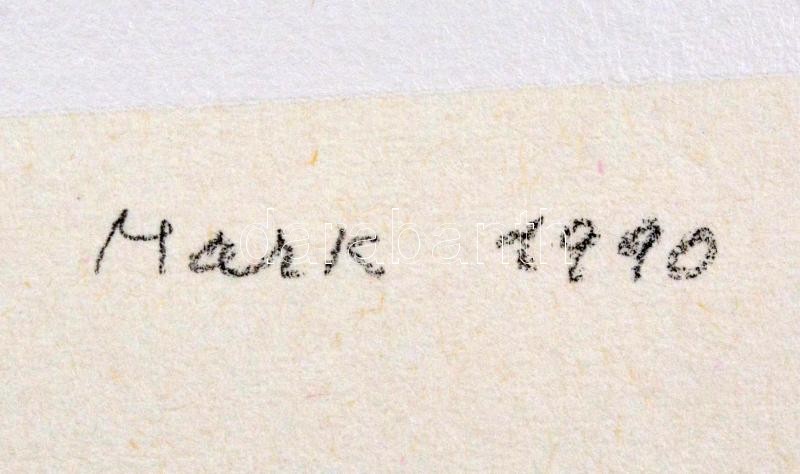 Mark 1990
darabanth